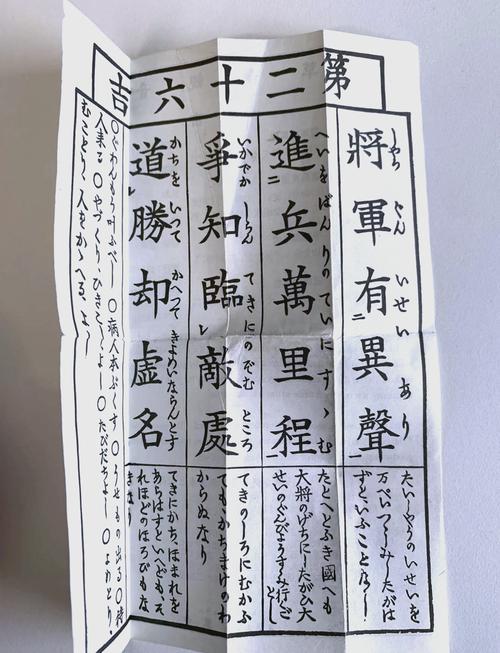 第二十六吉
將軍有異聲
しやうぐんいせいあり
たいしやうのいせいを
万ぺいつゝしみしたがは
ずといふことなし
進兵萬里程
へいをばんりのていにすゝむ
たとへとふき國へも
大將のげぢにしたがひ大
せいのぐんぴやうすゝみ行ごとし
爭知臨敵處
いかでかしらんてきにのぞむところ
てきのしろにむかふ
てもかちまけのわ
からぬなり
道勝却虚名
かちをいつてかへつてきよめいならんとす
てきにかち、ほまれを
あらはすといへども、そ
れほどのほろびもな
きなり
〇ぐわんもう叶ふべし 〇病人本ぷくす 〇うせもの出る 〇待
人来る 〇やづくり、ひきこしよし 〇たびだちよし 〇よめとり、
むことり、人をかゝへる、よし